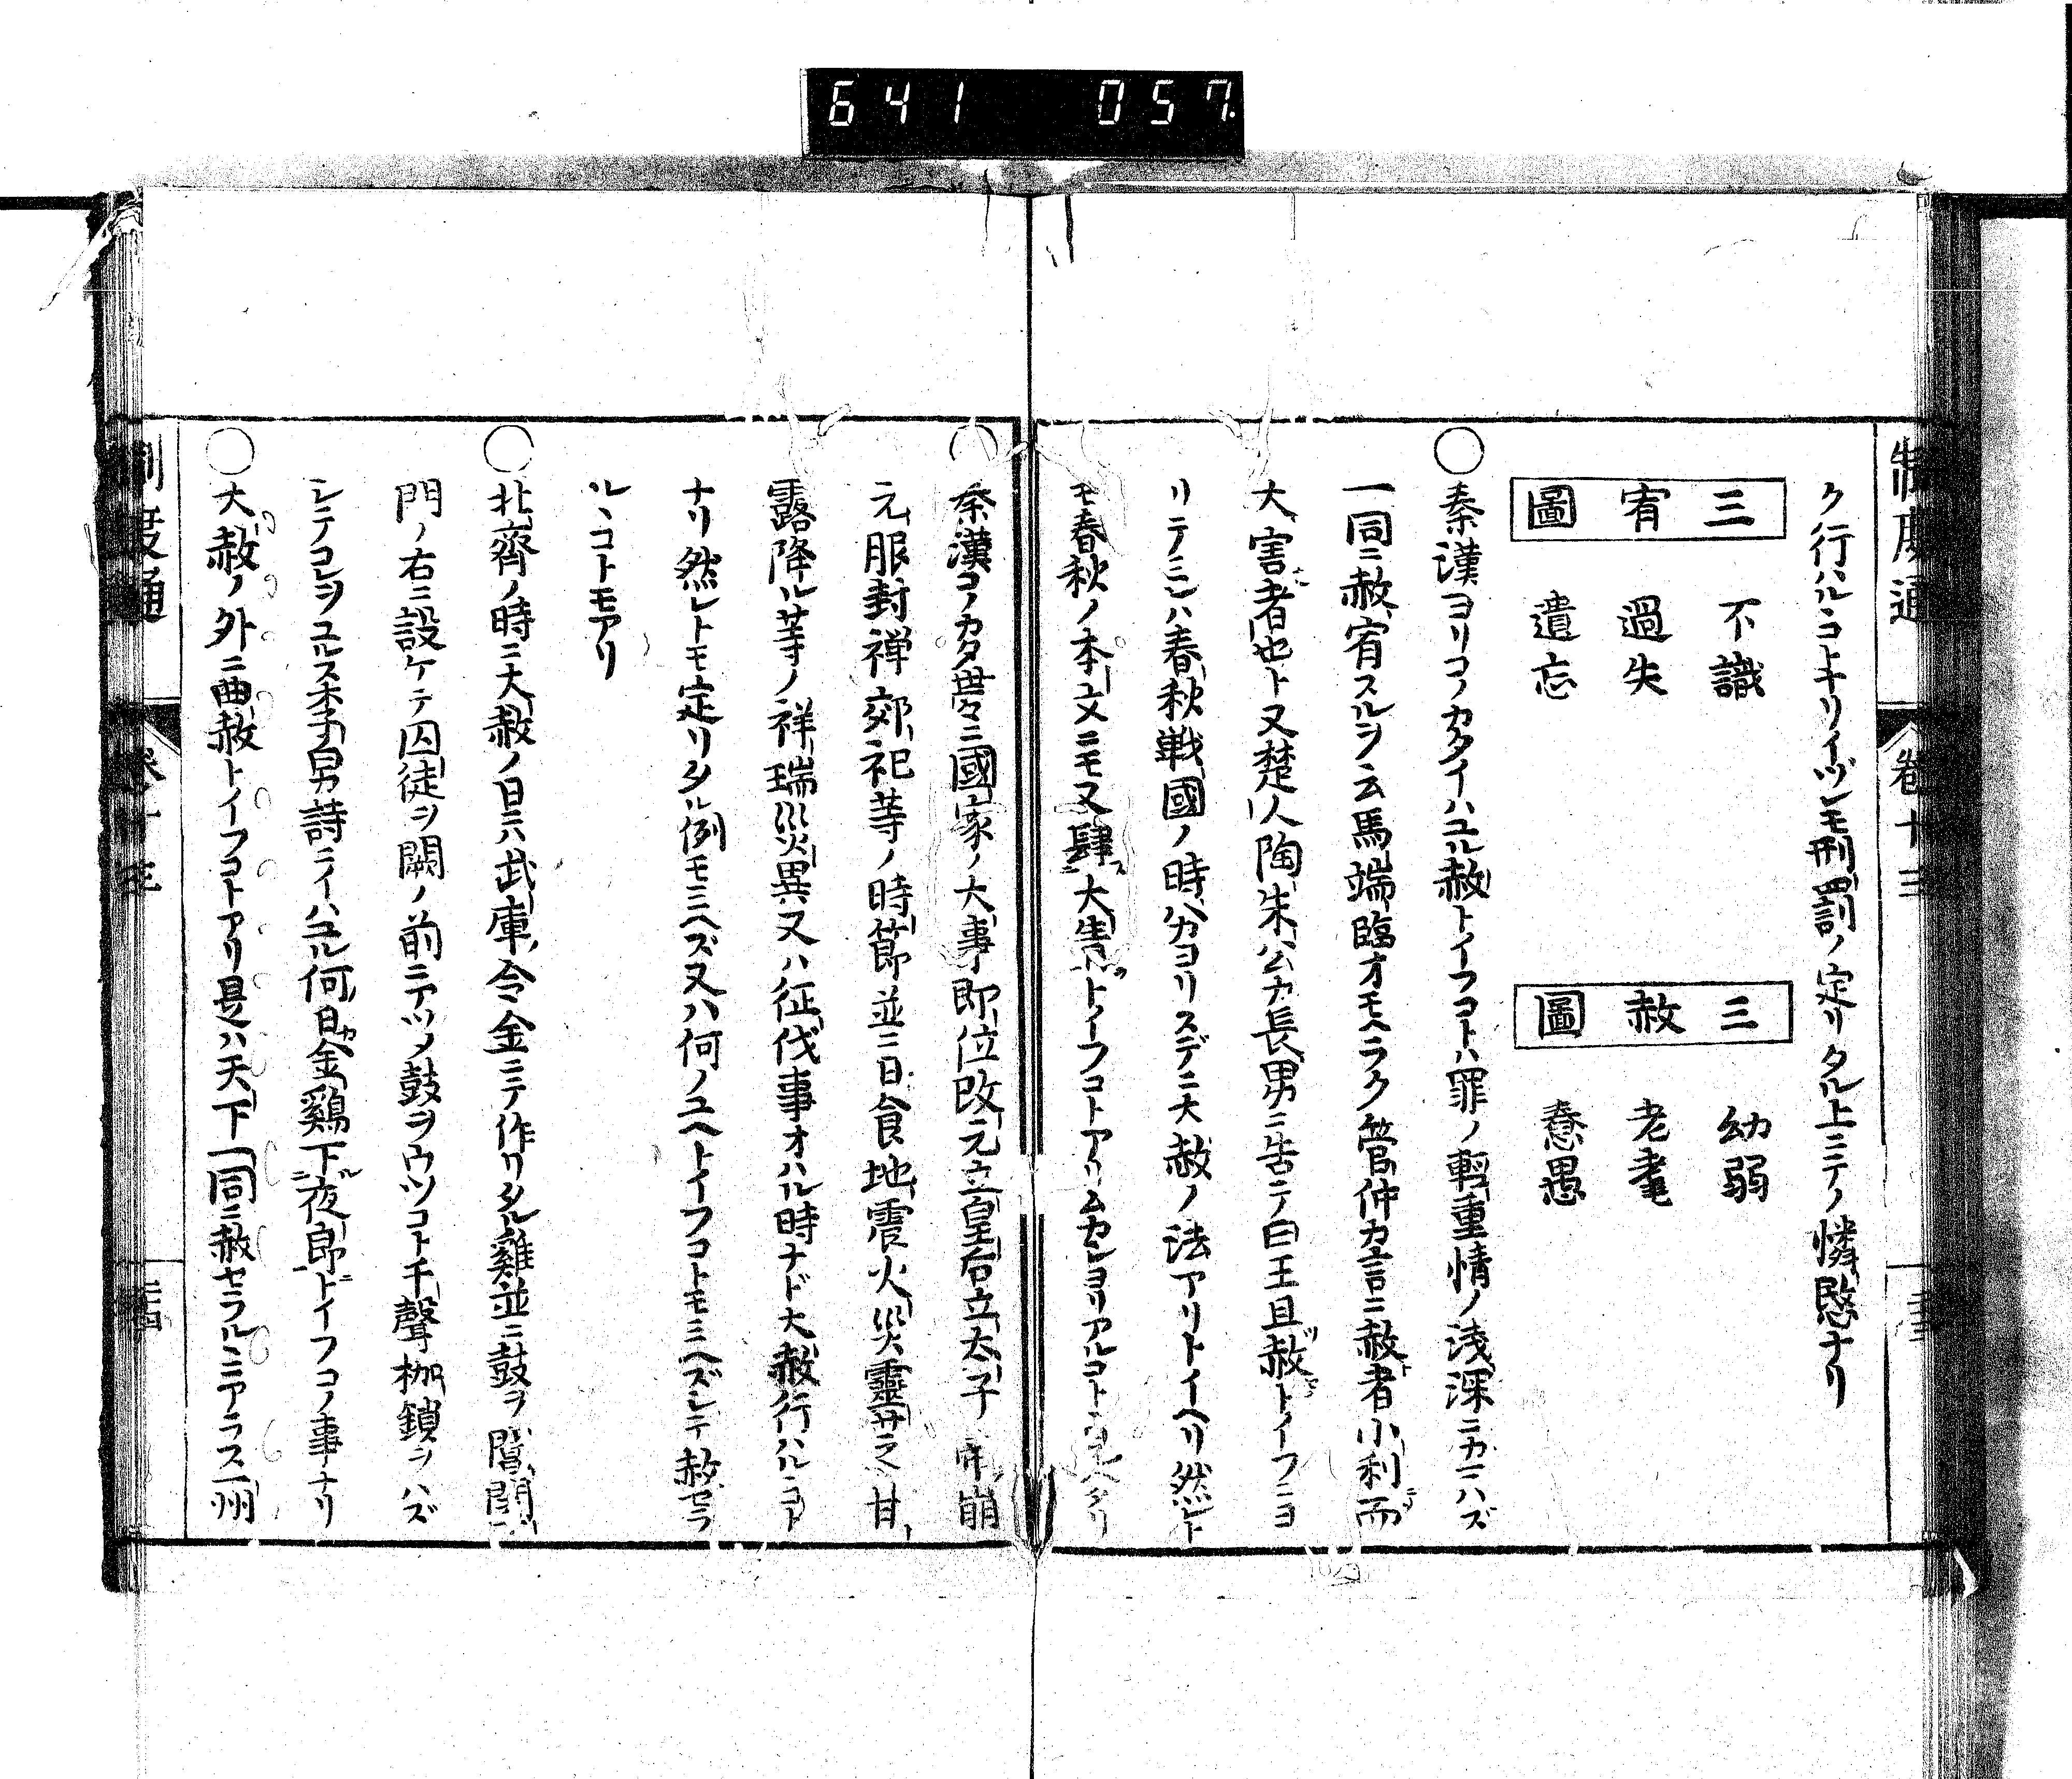 641 057
制度通 卷十三
ク行ハルヽコトナリイヅレモ刑罰ノ定リタル上ニテノ憐愍ナリ
三宥圖
不識
過失
遺忘
三赦圖
幼弱
老耄
憃愚
○秦漢ヨリコノカタイハユル赦トイフコトハ罪ノ輕重情ノ淺深ニカヽハズ
一同ニ赦宥スルヲ云馬端臨オモヘラク管仲カ言ニ赦者小利而
大害者也ト又楚人陶朱公カ長男ニ告テ曰王且赦トイフニヨ
リテミレハ春秋戰國ノ時分ヨリスデニ大赦ノ法アリトイヘリ然レト
モ春秋ノ本文ニモ又肆大眚トイフコトアリムカシヨリアルコト
○秦漢コノカタ世々ニ國家ノ大事即位改元立皇后立太子帝崩
元服封禅郊祀等ノ時節並ニ日食地震火災靈芝甘
露降ル等ノ祥瑞災異又ハ征伐事オハル時ナド大赦行ハルヽコト
ナリ然レトモ定リタル例モミヘズ又ハ何ノユヘトイフコトモミヘズシテ赦セラ
ルヽコトモアリ
○北齊ノ時ニ大赦ノ日ハ武庫令金ニテ作リタル雞並ニ鼓ヲ閶闔
門ノ右ニ設ケテ囚徒ヲ闕ノ前ニアツメ鼓ヲウツコト千聲枷鎖ヲハズ
シテコレヲユルス李白カ詩ニイハユル何日金鷄下夜郎トイフコノ事ナリ
○大赦ノ外ニ曲赦トイフコトアリ是ハ天下一同ニ赦セラルヽニアラス一州
制度通 卷十三